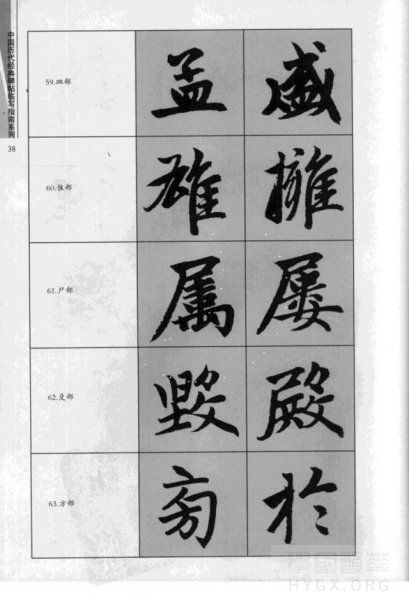 中国历代经典碑帖临写指南系列
38
59.皿部
孟 盛
60.隹部
雄 擁
61.尸部
属 屡
62.殳部
毁 殿
63.方部
於
HYGX.ORG